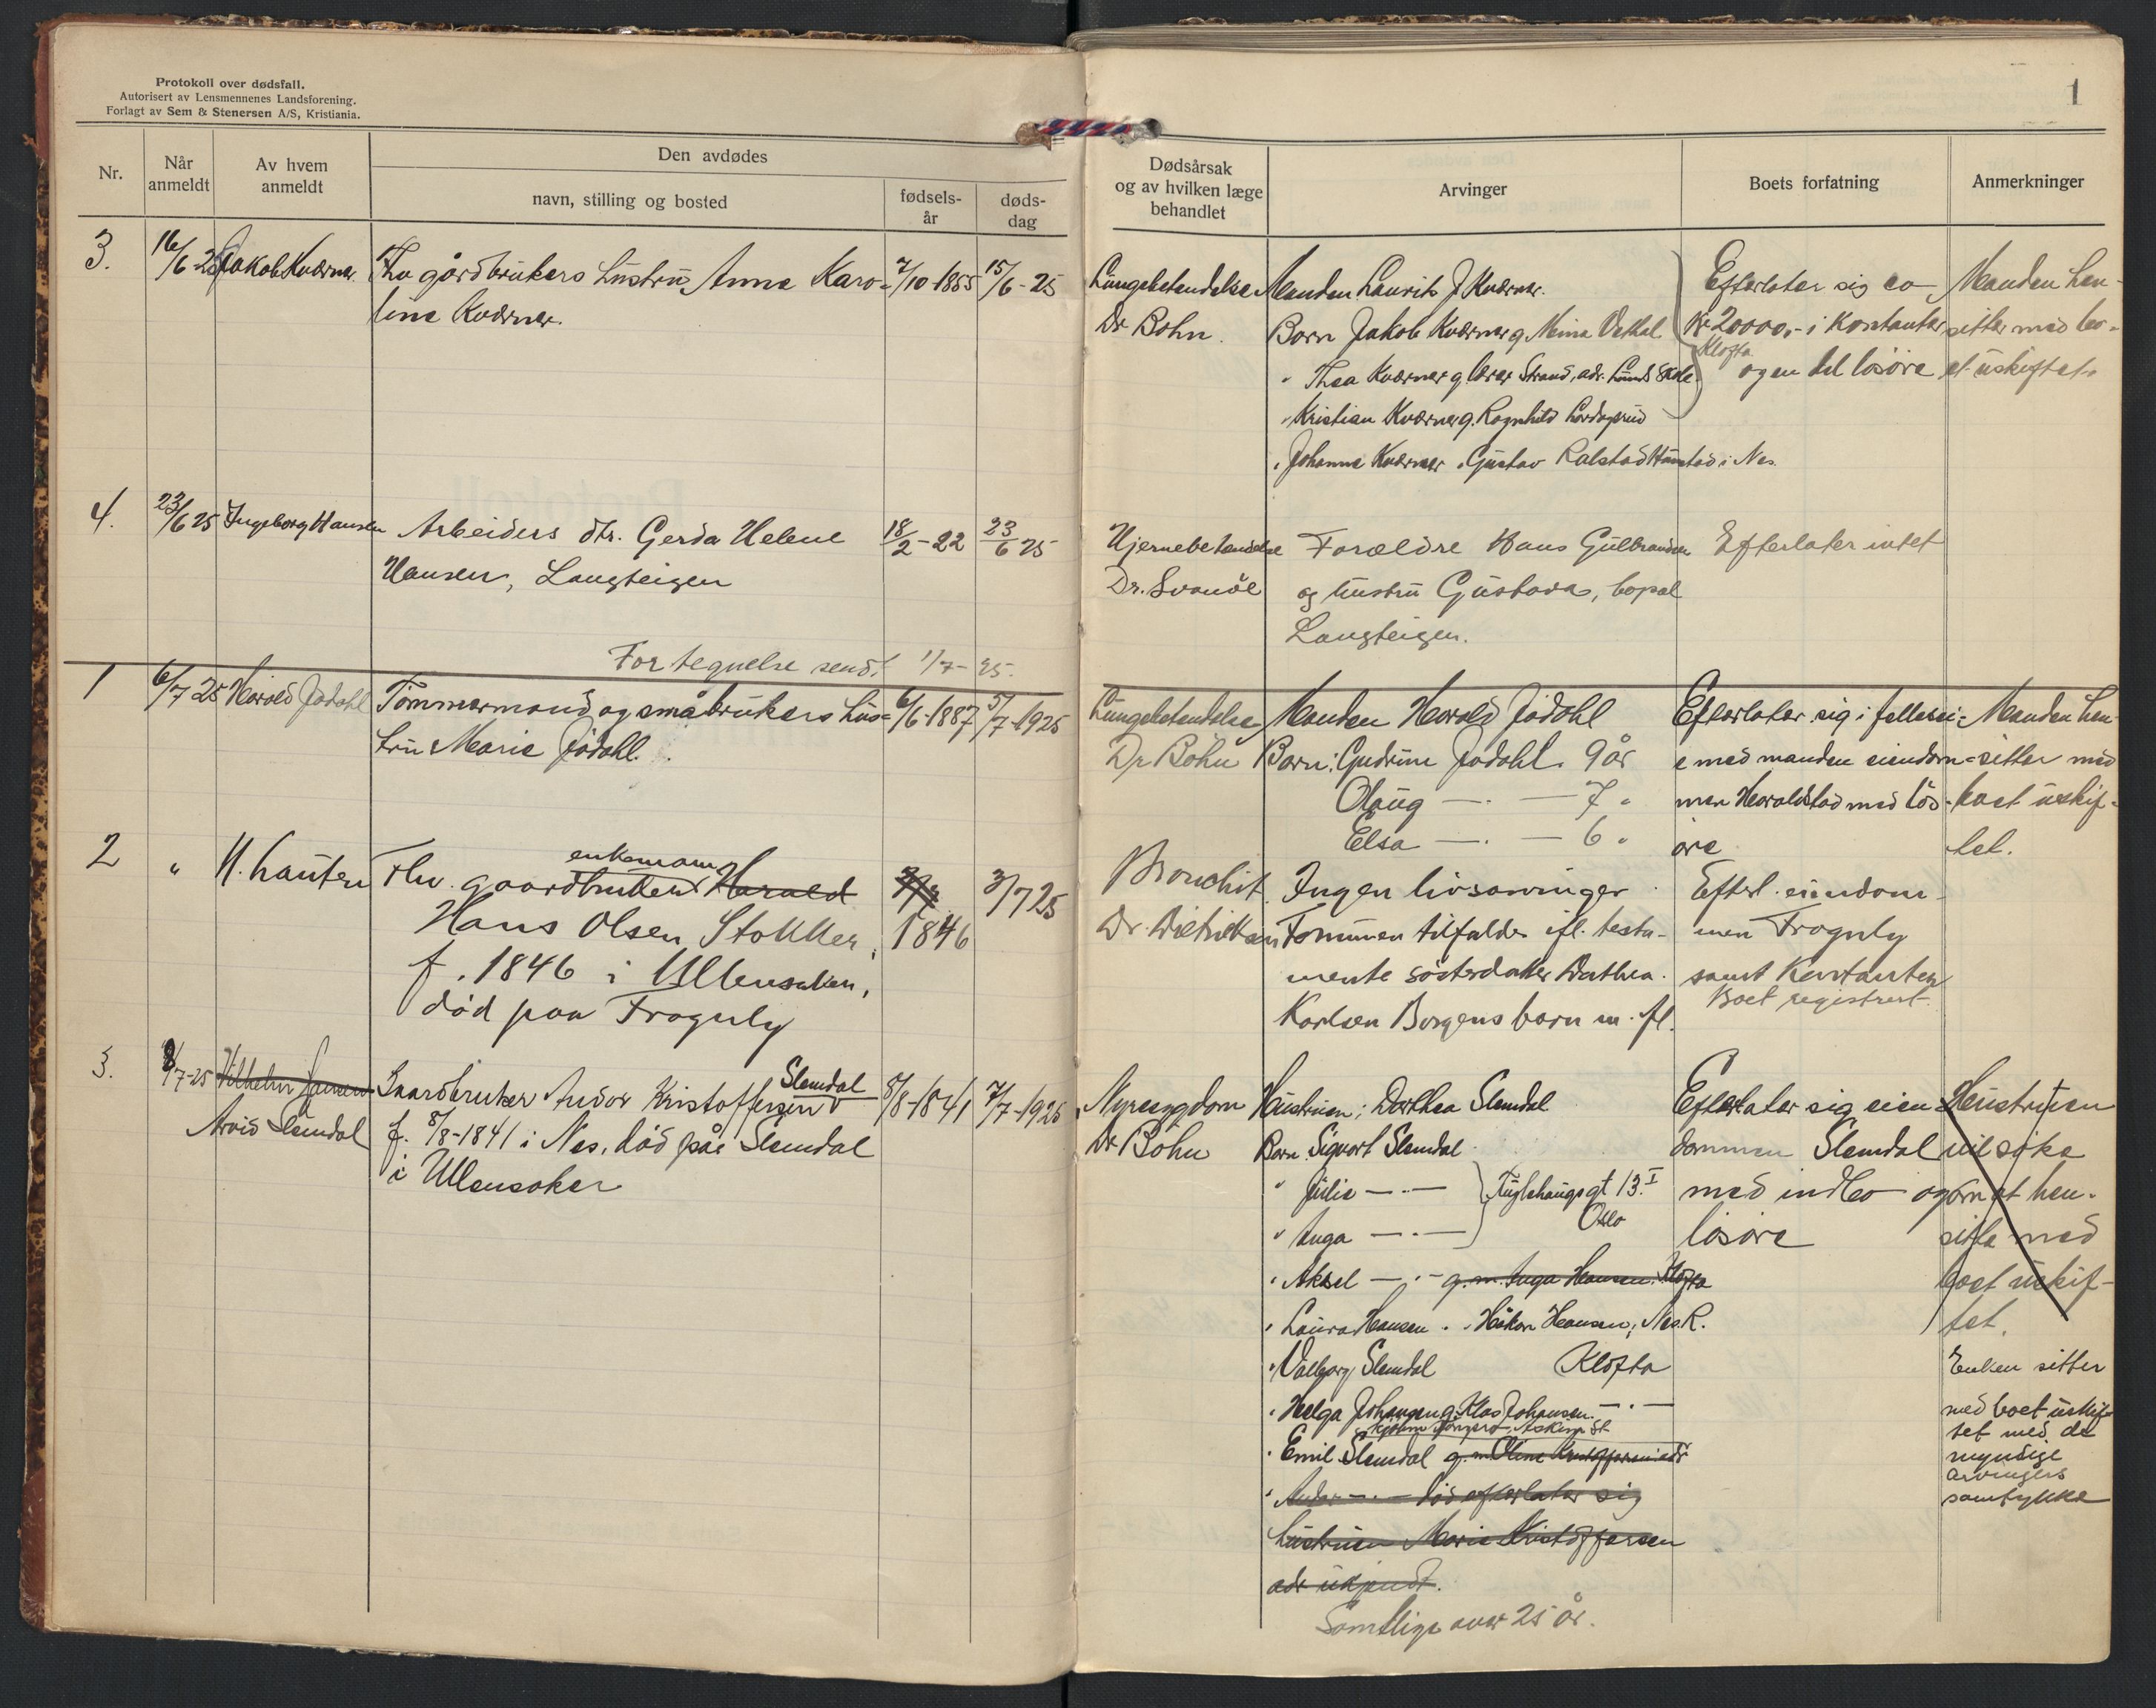 Protokoll over dødsfall.
Autorisert av Lensmennenes Landsforening.
Forlagt av Sem & Stenersen A/S, Kristiania.
Nr.
Når anmeldt
Av hvem anmeldt
Den avdødes
navn, stilling og bosted
fødsels-år
døds-dag
3.
16/6-25
Jakob Kværner.
Fhv gårdbrukers hustru Anne Karo-
line Kværner.
7/10-1855
15/6-25
4.
23/6 25
Ingeborg Hansen
Arbeiders dtr. Gerda Helene
Hansen, Langteigen
18/2-22
23/6 25
Fortegnelse sendt 1/7-25.
1
6/7 25
Harald Jødahl
Tømmermand og småbrukers hus-
tru Marie Jødahl.
6/6-1887
5/7-1925
2
"
H. Hauter
enkemann
Fhv. gaardbruker Harald
Hans Olsen Stokker,
f. 1846 i Ullensaker,
død paa Frognly
1846
3/7 25
3.
9/7-25
Vilhelm Jensen
Arvid Slemdal
Slemdal
Gaardbruker Andor Kristoffersen
f. 8/8-1841 i Nes, død på Slemdal
i Ullensaker
8/8-1841
7/7-1925
1
Dødsårsak
og av hvilken læge
behandlet
Arvinger
Boets forfatning
Anmerkninger
Lungebetendelse
Dr Bohn.
Manden Laurits J Kværner.
Børn Jakob Kværner g. Meina Vethal
" Thea Kværner g lærer Strand, adr. Lunds Skole
Kløfta
" Kristian Kværner g. Ragnhild Lørdagsrud
" Johanne Kværner " Gustav Ralstad Hanstad i Nes.
Efterlater sig ca
Kr 20000,- i kontanter
og en del løsøre
Manden hen-
sitter med bo-
et uskiftet.
Hjernebetændelse
Dr. Svanöe
Forældre Hans Gulbrandsen
og hustru Gustava, bopæl
Langteigen.
Efterlater intet
Lungebetendelse
Dr Bohn
Manden Harald Jødahl
Børn: Gudrun Jødahl. 9 år
Olaug —.— 7 "
Elsa —.— 6 "
Efterlater sig i fellesei-
e med manden eiendom-
men Haraldstad med løs-
øre
Manden hen-
sitter med
boet uskif-
tet.
Bronchit
Dr. Dietrikson
Ingen livsarvinger.
Formuen tilfalder ifl. testa-
mente søsterdatter Dorthea.
Karlsen Borgens barn m. fl.
Efterl. eiendom-
men Frognly
samt kontanter
Boet registrert.
Nyresygdom
Dr Bohn
Hustruen: Dorthea Slemdal
Børn Sigvart Slemdal
" Julie —.—
" Inga —.—
Fuglehaugsgt 13.I
Oslo
" Aksel —.— g.m. Inga Hansen. Kløfta
" Laura Hansen . " Håkon Hansen, Nes. R.
" Valborg Slemdal Kløfta
" Helga Johansen g. Klas Johansen. —.—
Askim St
" Emil Slemdal g.m. Oline Kristoffersen
" Andor —.— død efterlater sig
hustruen Marie Kristoffersen
adr ukjendt.
Samtlige over 25 år.
Efterlater sig eien-
dommen Slemdal
med indbo og
løsøre
Hustruen
vil søke
om at hen-
sitte med
boet uskif-
tet.
Enken sitter
med boet uskif-
tet med de
myndige
arvingers
samtykke